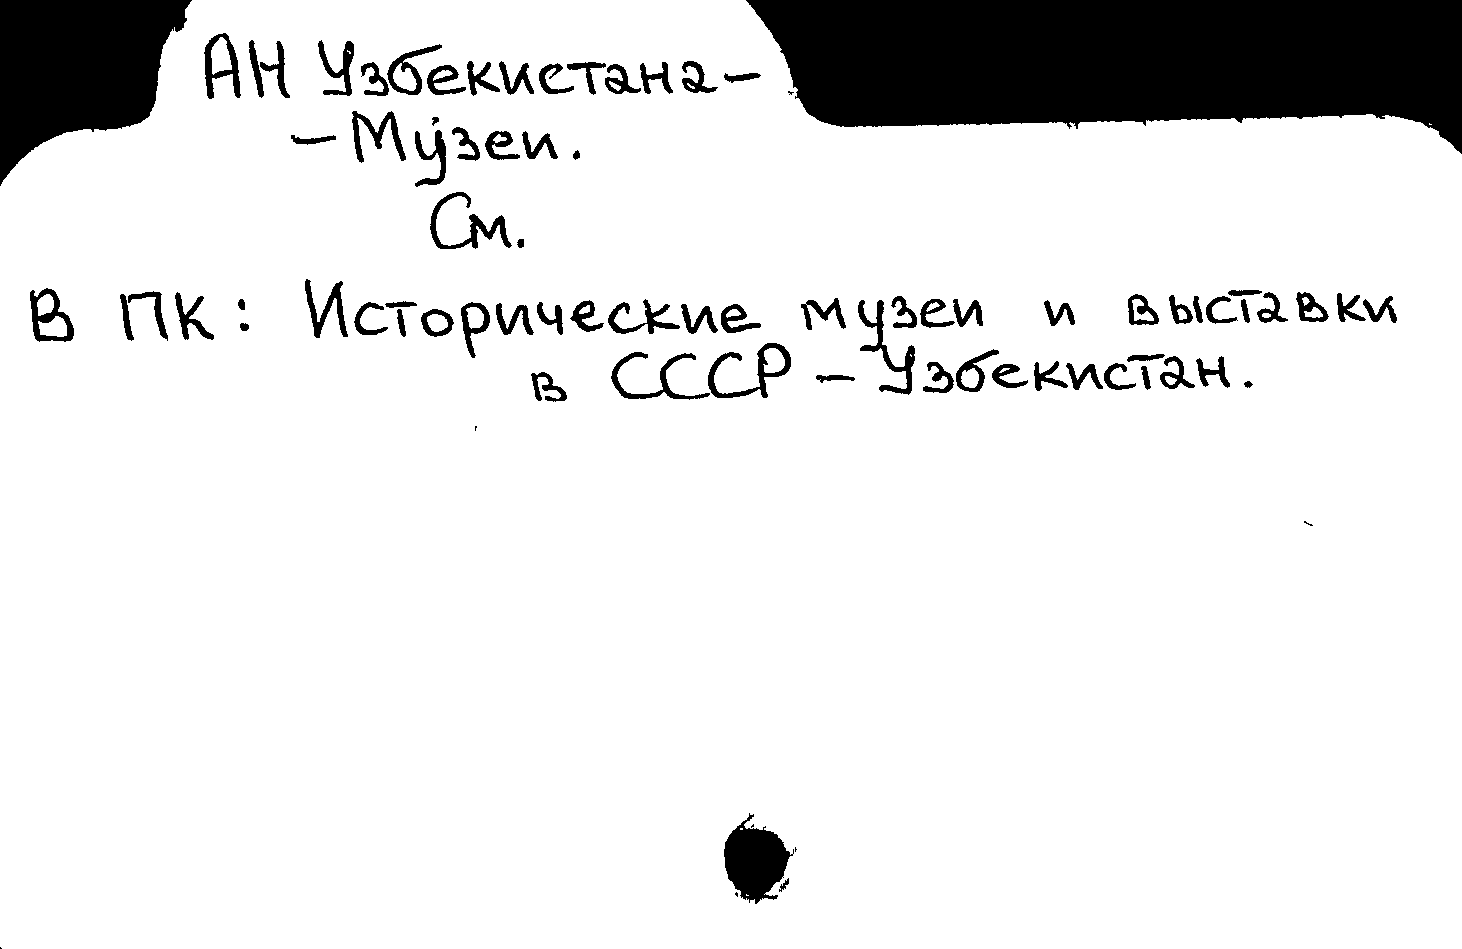 АН Узбекистана –
– Музеи.
См.
В ПК: Исторические музеи и выставки
в СССР – Узбекистан.